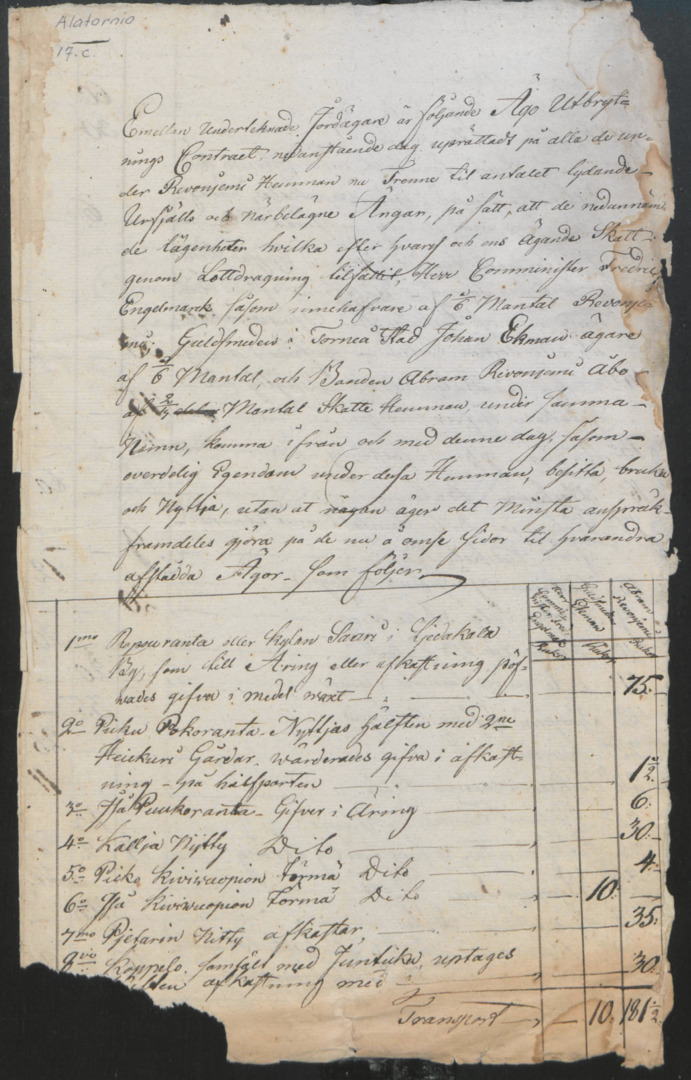 Alatornio
17. c.
Emellan Underteknade Jordägare är följande Ägo Utbryt-
nings Contract nedanstående dag uprättadt på alla de un-
der Revonsenii Hemman nu Trenne til antalet lydande
Utfjälls och närbelägne Ängar, på sätt, att de nedannämn
de lägenheter hvilka efter hvars och ens ägande Skatt
genom Lottdragning tilfallit, Herr Comminister Fredric
Engelmarck såsom innehafvare af 3/6 Mantal Revonse
Guldsmeden i Torneå Stad Johan Ekman ägare
af Mantal, och Bonden Abram Revonsenii Åbo
Mantal Skatte Hemman, under samma
Namn, komma ifrån och med denne dag, såsom
overdelig Egendom under dessa Hemman, besitta, bruka
och Nyttja, utan at någon äger det Minsta anspråk
framdeles göra på de nu å ömse sidor til hvarandra
afstådda Ägor, som följer
Herr Comminister Engelmarck Rubor
Guldsmeden Ekman Rubor
Abram Revonsenii Rubor
1mo eller Kylän Saari i Gjedakala
By, som till Åring eller afkastning pröf-
wades gifva i medel wäxt 75.
2o Picku Pokoranta Nyttjas hälften med 2ne
Heickuri Gårdar wärderades gifva i afkast-
ning på halfparten 1 1/2
3o Iså Puukoranta Gifver i Åring 6.
4o Kallja Nytty Dito 30.
5o Picku Kiviwuopion Törmä Dito 4.
6o Iså Kiviwuopion Törmä Dito 10.
7mo Pjetarin Nitty afkastar 35.
8vo Koppelo samfält med Junticka uptages
afkastning med 30.
Transport 10. 181 1/2